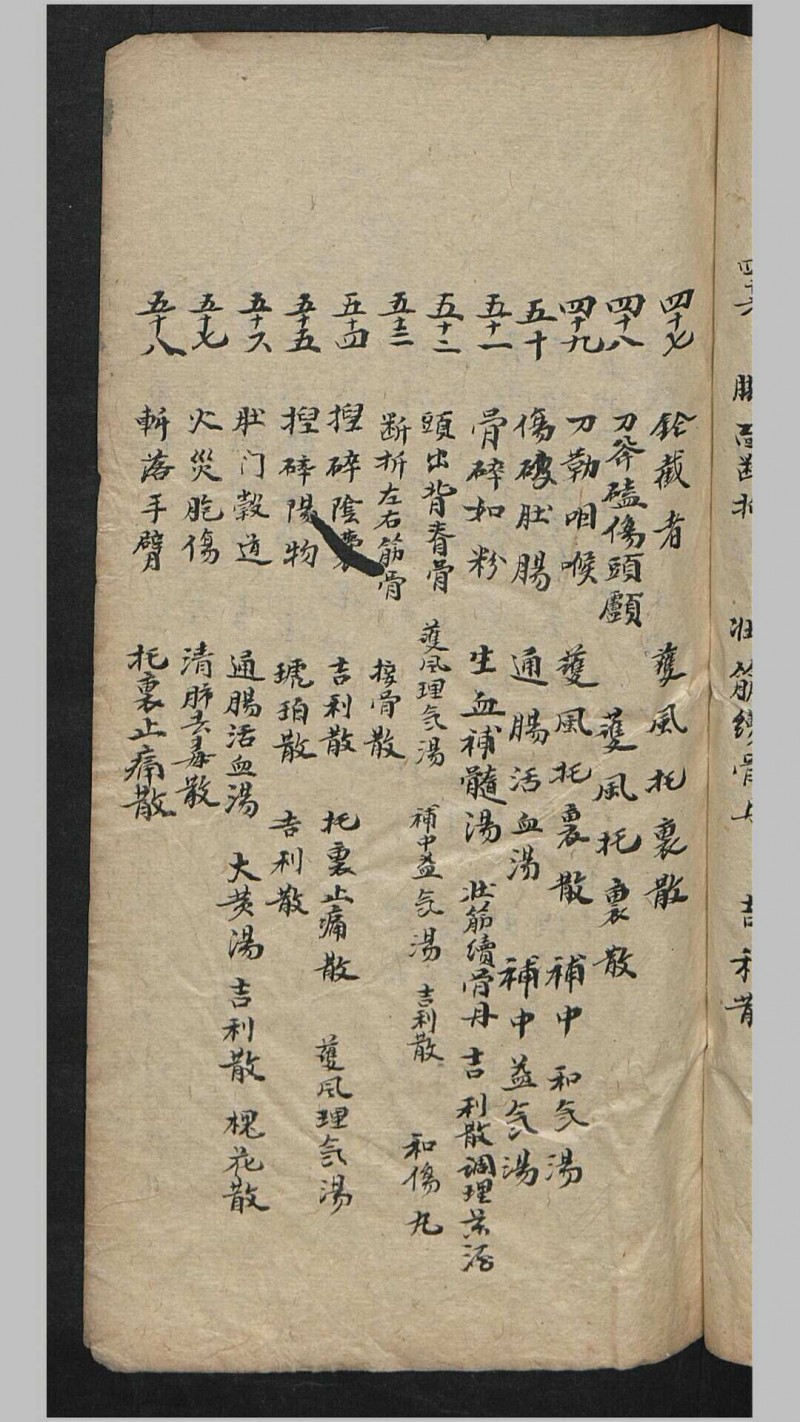 四十六
壯筋續骨丹 吉利散
四十七 鎗截者 護風托裏散
四十八 刀斧磕傷頭顱 護風托裏散
四十九 刀勒咽喉 護風托裏散 補中和气湯
五十 傷破肚腸 通腸活血湯 補中益气湯
五十一 骨碎如粉 生血補髓湯 壯筋續骨丹 吉利散調理药酒
五十二 頭出背脊骨 護風理气湯 補中益气湯 吉利散 和傷丸
五十三 断折左右筋骨 接骨散
五十四 揑碎陰囊 吉利散 托裏止痛散 護風理气湯
五十五 揑碎陽物 琥珀散 吉利散
五十六 肚门穀道 通腸活血湯 大黄湯 吉利散 槐花散
五十七 火災胞傷 清肺去毒散
五十八 斬落手臂 托裏止痛散